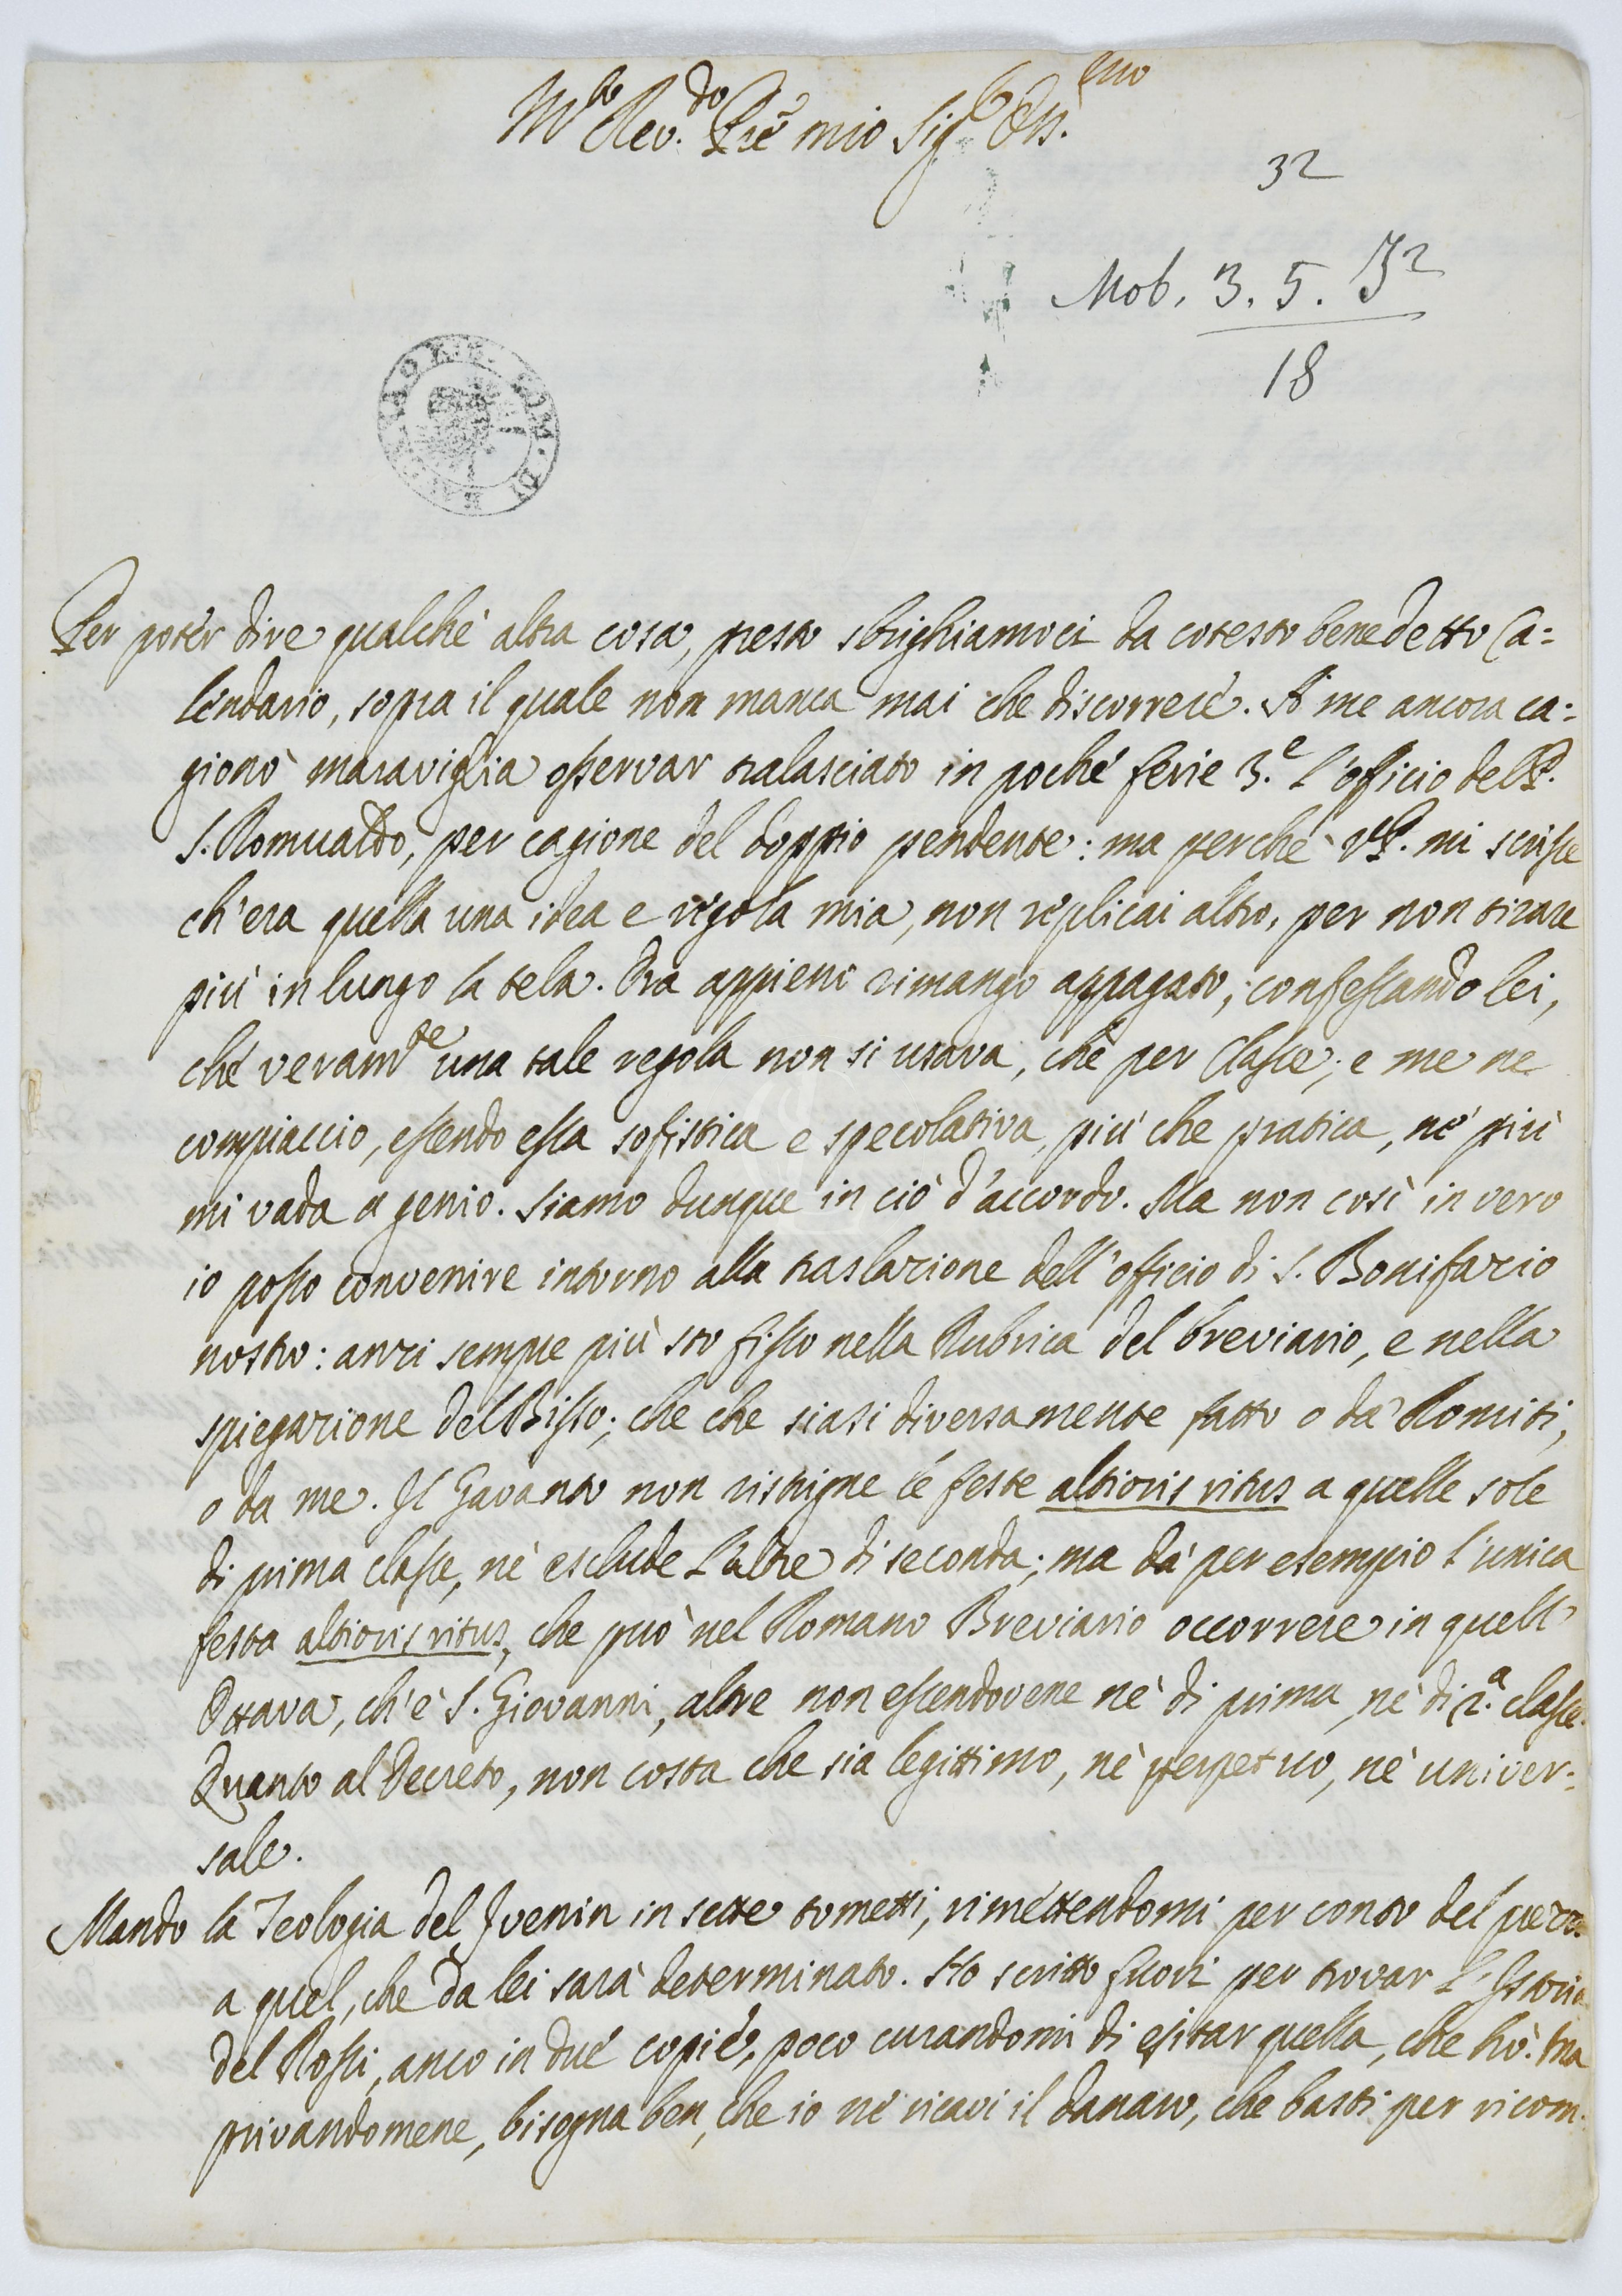 M.to Rev.do Pre mio Sig.r Oss.mo
32
Mob. 3. 5. J2
18
Per potèr dire qualche altra cosa, presto sbrighiamoci da cotesto benedetto Ca=
lendario, sopra il quale non manca mai che discorrere. A me ancora ca=
gionò maraviglia osservar tralasciato in poche ferie 3.e l'officio del P.
S. Romualdo, per cagione del doppio pendente: ma perchè V.P. mi scrisse
ch'era quella una idea e regola mia, non replicai altro, per non tirare
più in lungo la tela. Ora appieno rimango appagato, confessando lei,
che veram.te una tale regola non si usava, che per Classe; e me ne
compiaccio, essendo essa sofistica e specolativa, più che pratica, nè più
mi vada a genio. Siamo dunque in ciò d'accordo. Ma non così in vero
io posso convenire intorno alla traslazione dell'officio di S. Bonifazio
nostro: anzi sempre più sto fisso nella Rubrica del breviario, e nella
spiegazione del Bisso; che che siasi diversamente fatto o da' Romiti,
o da me. Il Gavanto non ristrigne le feste altioris ritus a quelle sole
di prima classe, nè esclude l'altre di seconda; ma dà per esempio l'unica
festa altioris ritus, che può nel Romano Breviario occorrere in quell'
Ottava, ch'è S. Giovanni, altre non essendovene nè di prima, nè di 2.a classe.
Quanto al Decreto, non costa che sia legittimo, nè perpetuo, nè univer=
sale.
Mando la Teologia del Juenin in sette tometti, rimettendomi per conto del prezzo
a quel, che da lei sarà determinato. Ho scritto fuori per trovar l'Istoria
del Rossi, anco in due copie, poco curandomi di esitar quella, che hò. Ma
privandomene, bisogna ben, che io ne ricavi il danaro, che basti per ricom=